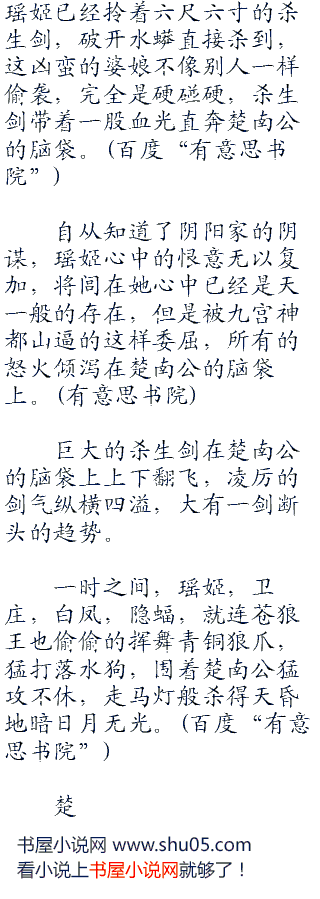 瑶姬已经拎着六尺六寸的杀
生剑，破开水蟒直接杀到，
这凶蛮的婆娘不像别人一样
偷袭，完全是硬碰硬，杀生
剑带着一股血光直奔楚南公
的脑袋。(百度“有意思书
院”)
自从知道了阴阳家的阴
谋，瑶姬心中的恨意无以复
加，将闾在她心中已经是天
一般的存在，但是被九宫神
都山逼的这样委屈，所有的
怒火倾泻在楚南公的脑袋
上。(有意思书院)
巨大的杀生剑在楚南公
的脑袋上上下翻飞，凌厉的
剑气纵横四溢，大有一剑断
头的趋势。
一时之间，瑶姬，卫
庄，白凤，隐蝠，就连苍狼
王也偷偷的挥舞青铜狼爪，
猛打落水狗，围着楚南公猛
攻不休，走马灯般杀得天昏
地暗日月无光。(百度“有意
思书院”)
楚
书屋小说网 www.shu05.com
看小说上书屋小说网就够了！